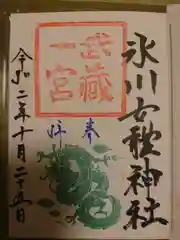 氷川女體神社
奉拝
武蔵
一宮
令和二年十月二十五日